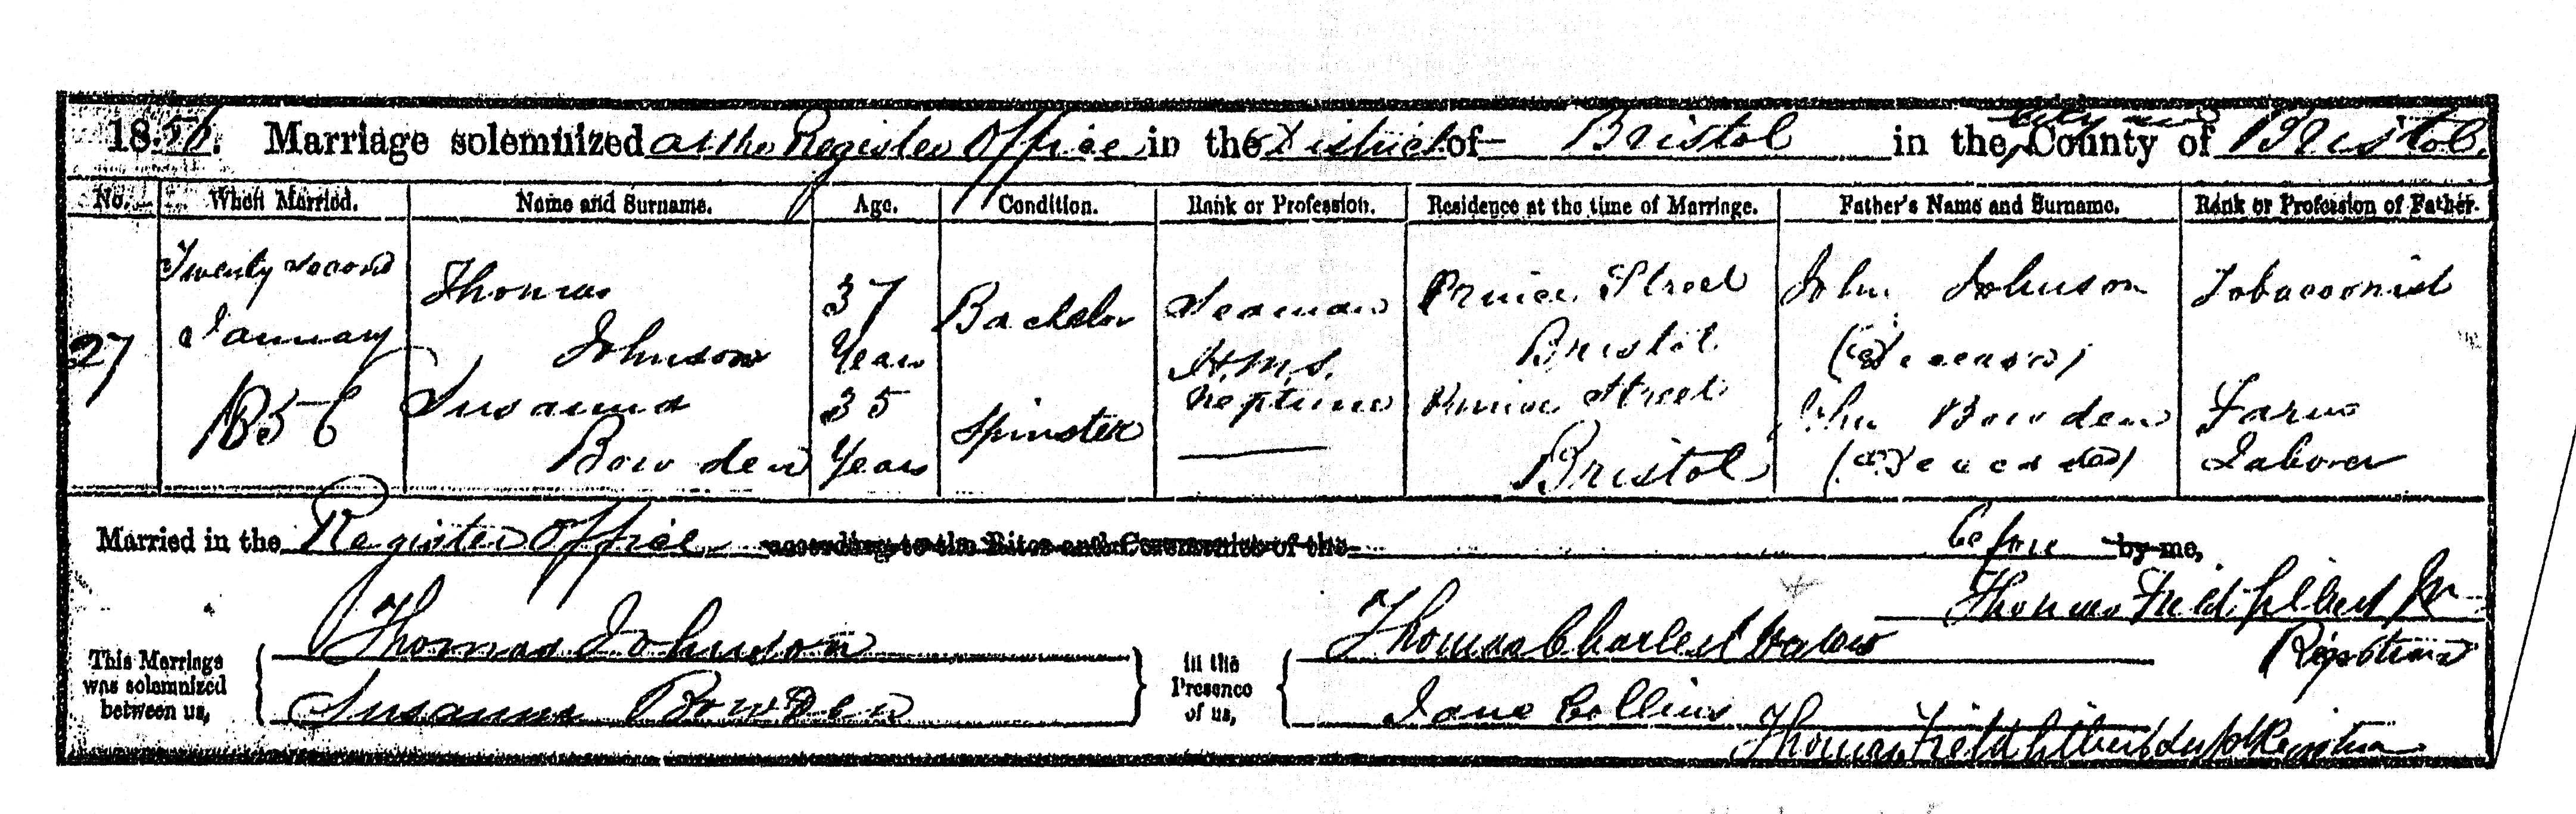 1856. Marriage solemnized at the Register Office in the District of Bristol in the City and County of Bristol.
No. When Married. Name and Surname. Age. Condition. Rank or Profession. Residence at the time of Marriage. Father's Name and Surname. Rank or Profession of Father.
27 Twenty second January 1856 Thomas Johnson 37 Years Bachelor Seaman H.M.S. Neptune Prince Street Bristol John Johnson (Deceased) Tobacconist
Susanna Bowden 35 Years Spinster Prince Street Bristol John Bowden (Deceased) Farm Laborer
Married in the Register Office according to the Rites and Ceremonies of the before by me,
Thomas Field Gilbert Jnr
Registrar
This Marriage was solemnized between us, Thomas Johnson
Susanna Bowden
In the Presence of us, Thomas Charles
Jane Collins
Thomas Field Gilbert Supt Registrar